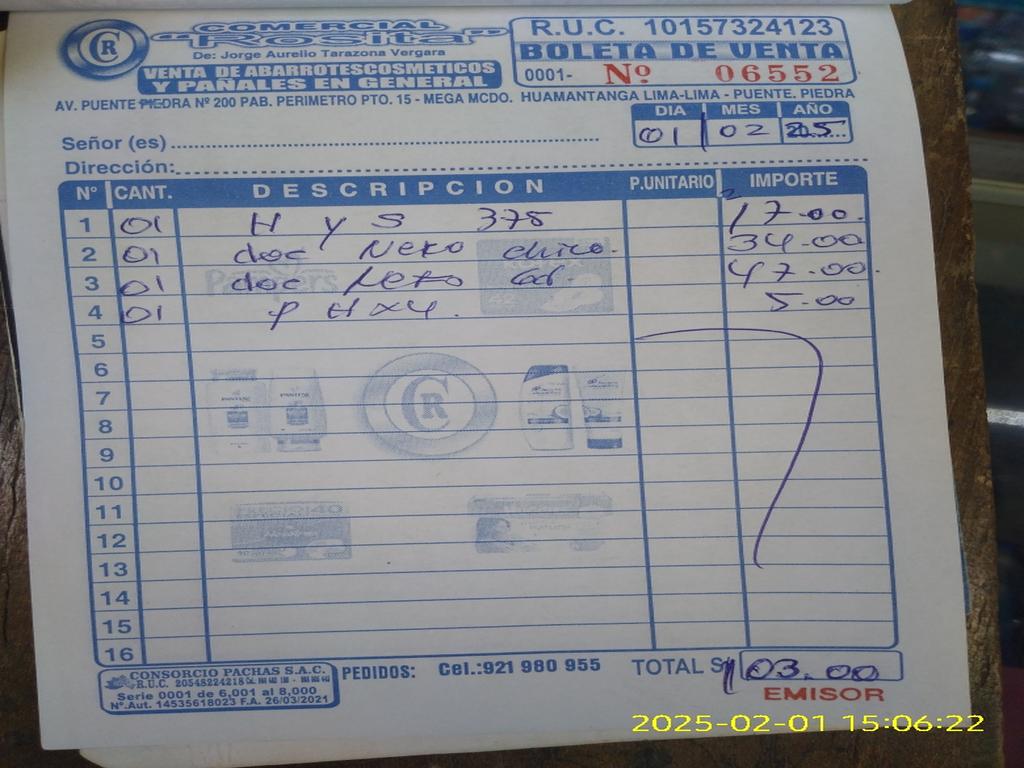 COMERCIAL
"Rosita"
De: Jorge Aurelio Tarazona Vergara
VENTA DE ABARROTESCOSMETICOS
Y PAÑALES EN GENERAL
CR
R.U.C. 10157324123
BOLETA DE VENTA
0001- Nº 06552
AV. PUENTE PIEDRA Nº 200 PAB. PERIMETRO PTO. 15 - MEGA MCDO. HUAMANTANGA LIMA-LIMA - PUENTE. PIEDRA
DIA MES AÑO
01 02 25
Señor (es)
Dirección:
Nº CANT. DESCRIPCION P.UNITARIO IMPORTE
1 01 H y S 375 17.00
2 01 doc Neko chico. 34.00
3 01 doc Neko 47.00
4 01 P H x 4. 5.00
5
6
7
8
9
10
11
12
13
14
15
16
CONSORCIO PACHAS S.A.C.
R.U.C. 20548224218
Serie 0001 de 6,001 al 8,000
Nº.Aut. 14535618023 F.A. 26/03/2021
PEDIDOS: Cel.:921 980 955
TOTAL S/ 103.00
EMISOR
2025-02-01 15:06:22